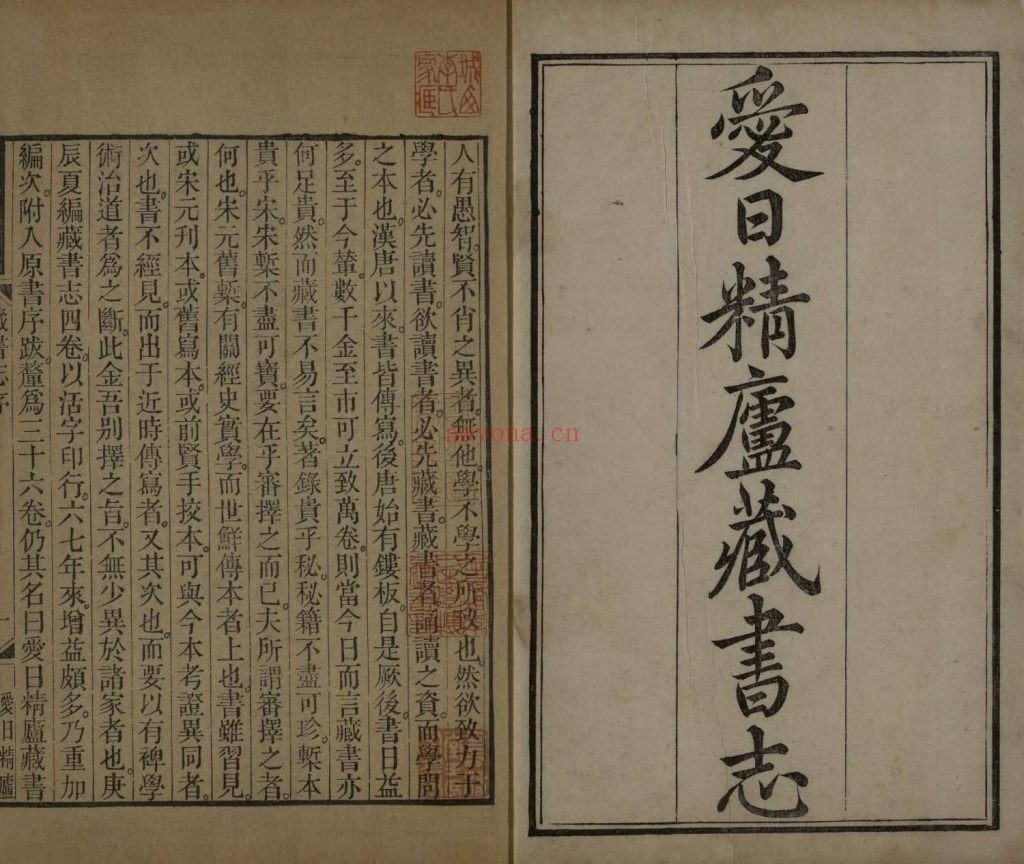 愛日精廬藏書志
人有愚智賢不肖之異者。無他。學不學之所致也。然欲致力于
學者。必先讀書。欲讀書者。必先藏書。藏書者。誦讀之資。而學問
之本也。漢唐以來。書皆傳寫。後唐始有鏤板。自是厥後。書日益
多。至于今。輦數千金至市。可立致萬卷。則當今日而言藏書。亦
何足貴。然而藏書不易言矣。著錄貴乎秘。秘籍不盡可珍。槧本
貴乎宋。宋槧不盡可寶。要在乎審擇之而已。夫所謂審擇之者。
何也。宋元舊槧。有關經史實學。而世鮮傳本者上也。書雖習見。
或宋元刊本。或舊寫本。或前賢手挍本。可與今本考證異同者。
次也。書不經見。而出于近時傳寫者。又其次也。而要以有裨學
術治道者爲之斷。此金吾别擇之旨。不無少異於諸家者也。庚
辰夏編藏書志四卷。以活字印行。六七年來。增益頗多。乃重加
編次。附入原書序跋。釐爲三十六卷。仍其名曰愛日精廬藏書
藏書志序
一
愛日精廬
nayona.cn